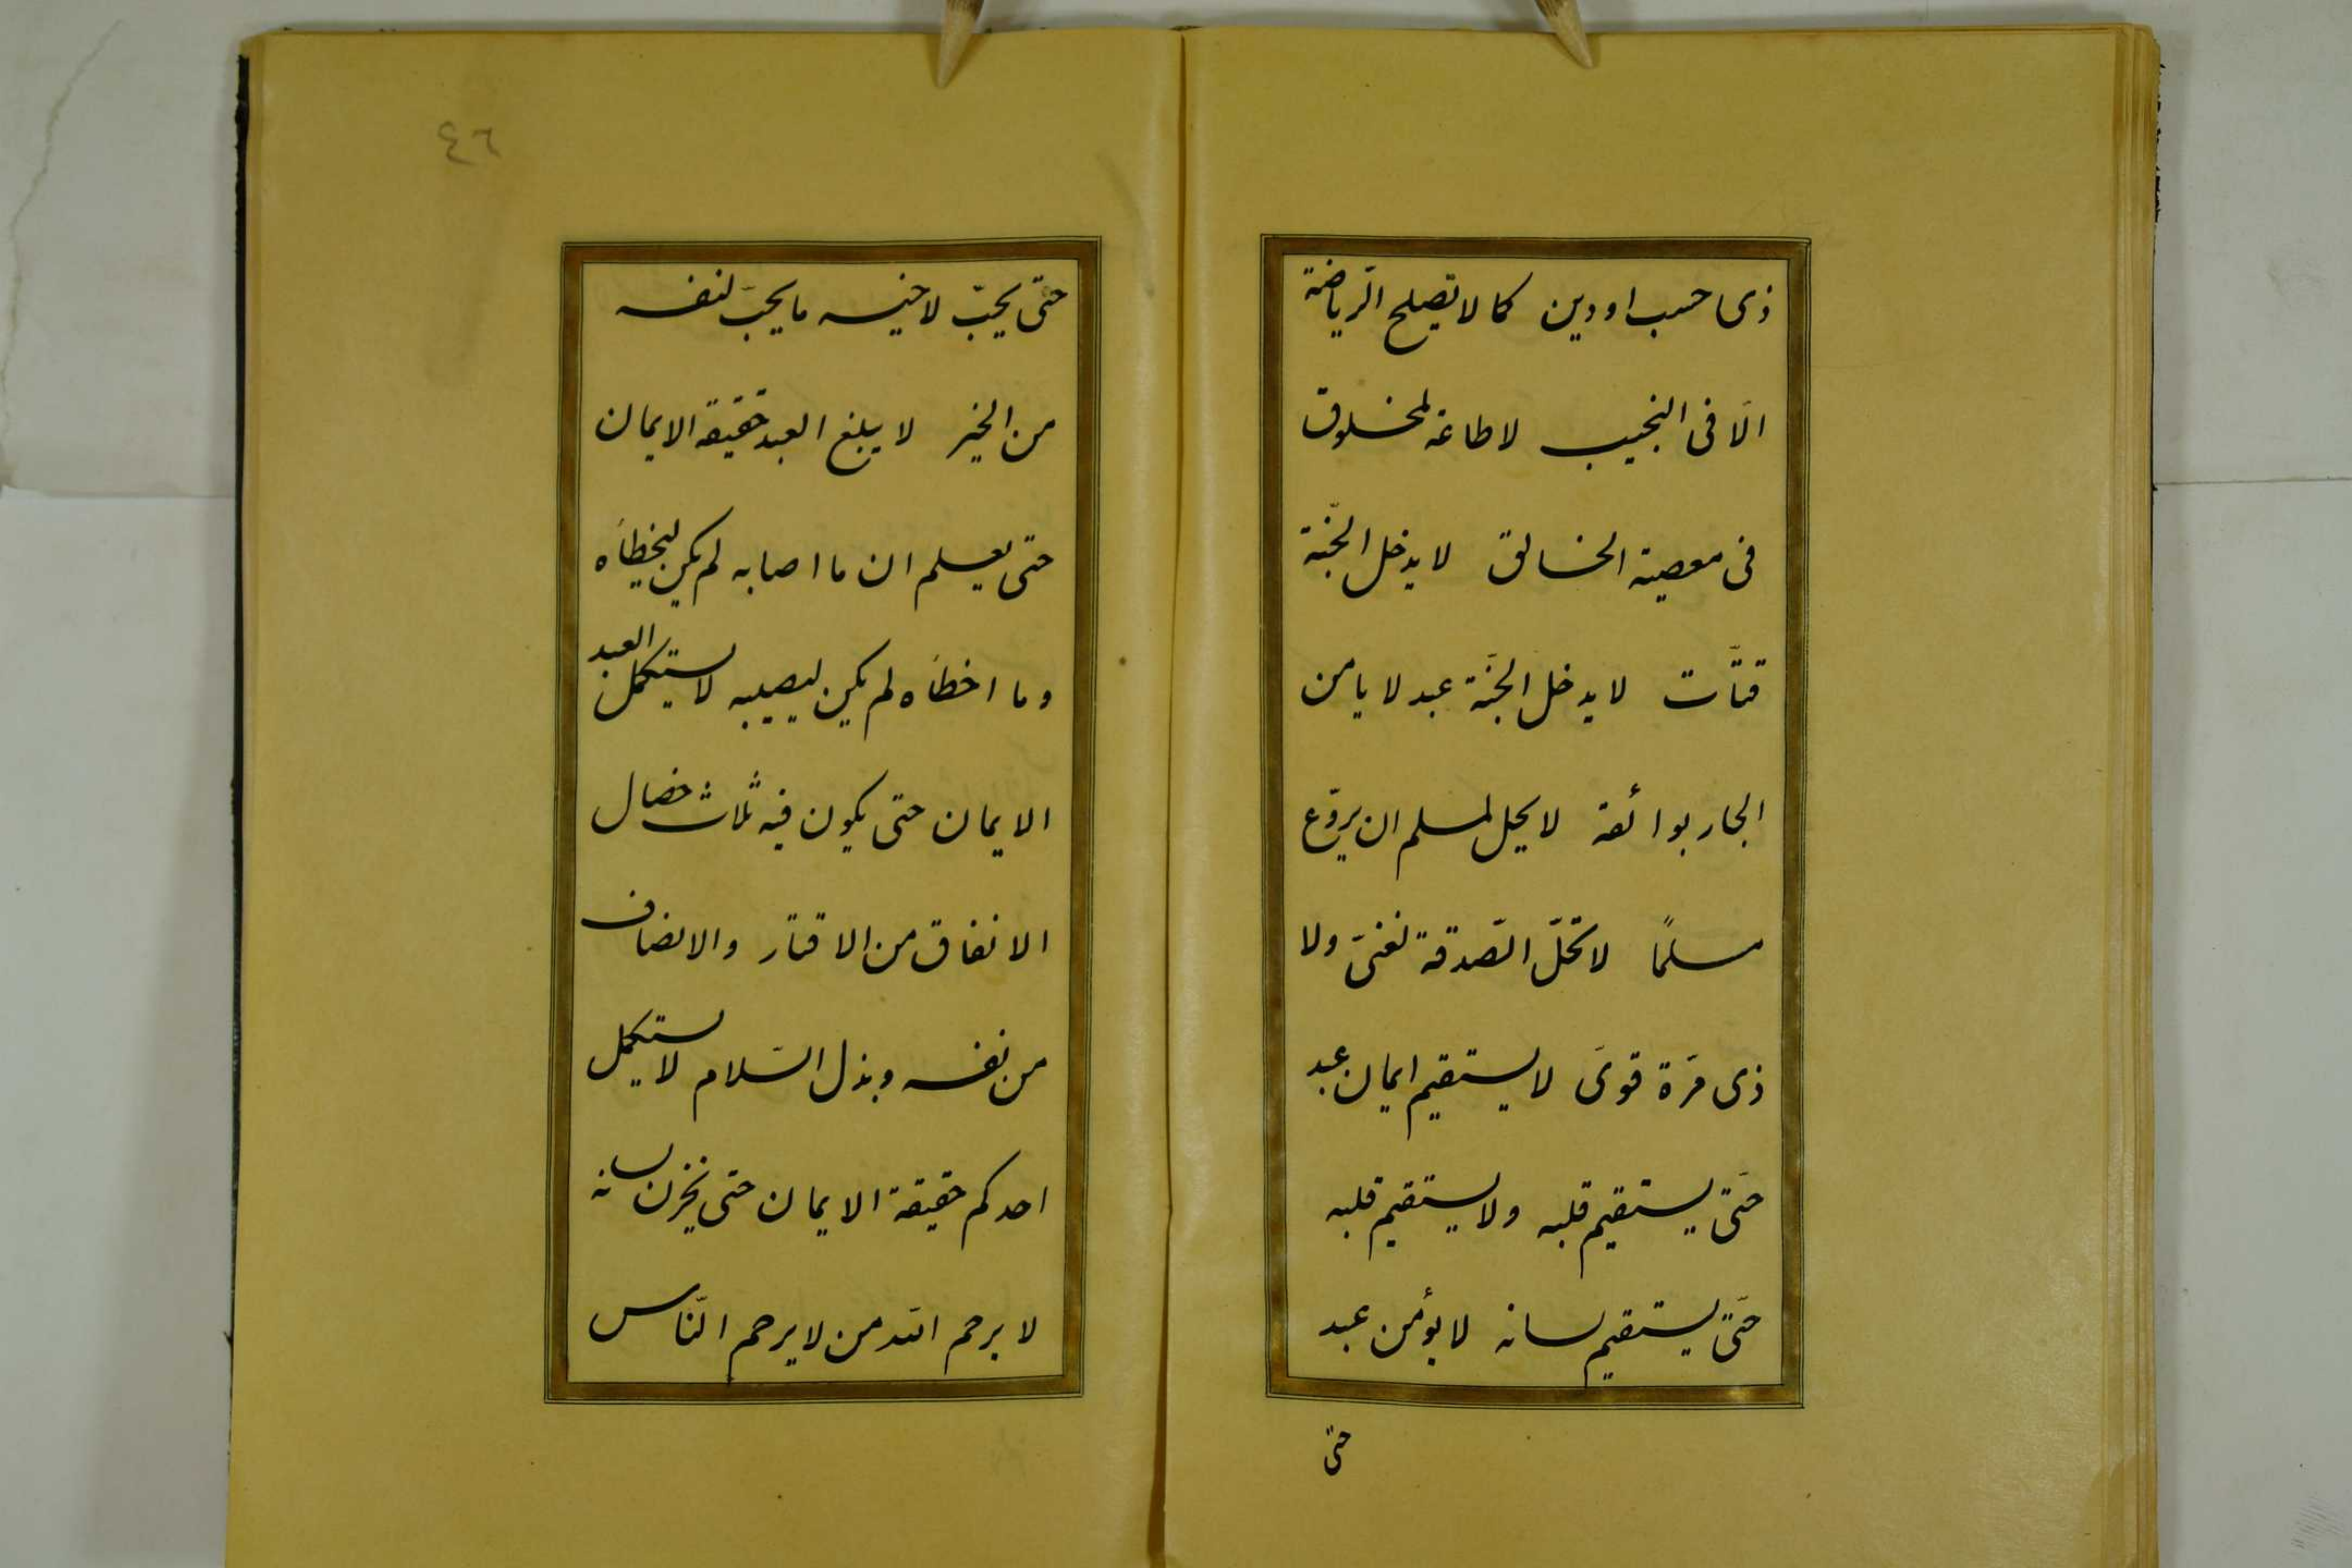 ذى حسب او دين كما لا تصلح الرّياضة
الّا فى النجيب لا طاعة لمخلوق
فى معصية الخالق لا يدخل الجنّة
قتّات لا يدخل الجنّة عبد لا يامن
الجار بوائقه لا يحل لمسلم ان يروّع
مسلمًا لا تحلّ الصّدقة لغنىّ ولا
ذى مرّة قوىّ لا يستقيم ايمان عبد
حتّى يستقيم قلبه ولا يستقيم قلبه
حتّى يستقيم لسانه لا يؤمن عبد
حتّى
٤٦
حتّى يحبّ لاخيه ما يحبّ لنفسه
من الخير لا يبلغ العبد حقيقة الايمان
حتى يعلم ان ما اصابه لم يكن ليخطأه
وما اخطأه لم يكن ليصيبه لا يستكمل العبد
الايمان حتى يكون فيه ثلاث خصال
الانفاق من الاقتار والانصاف
من نفسه وبذل السّلام لا يستكمل
احدكم حقيقة الايمان حتى يخزن لسانه
لا يرحم الله من لا يرحم النّاس